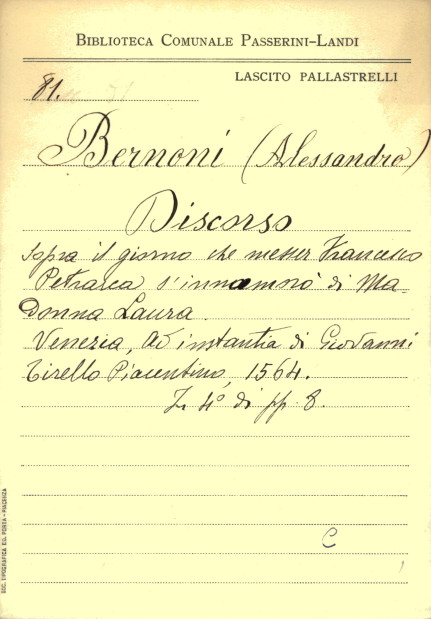 BIBLIOTECA COMUNALE PASSERINI-LANDI
LASCITO PALLASTRELLI
81.
Bernoni (Alessandro)
Discorso
sopra il giorno che messer Francesco
Petrarca s'innamorò di Ma-
donna Laura.
Venezia, Ad instantia di Giovanni
Tirello Piacentino, 1564.
In 4° di pp. 8.
C
SOC. TIPOGRAFICA ED. PORTA - PIACENZA